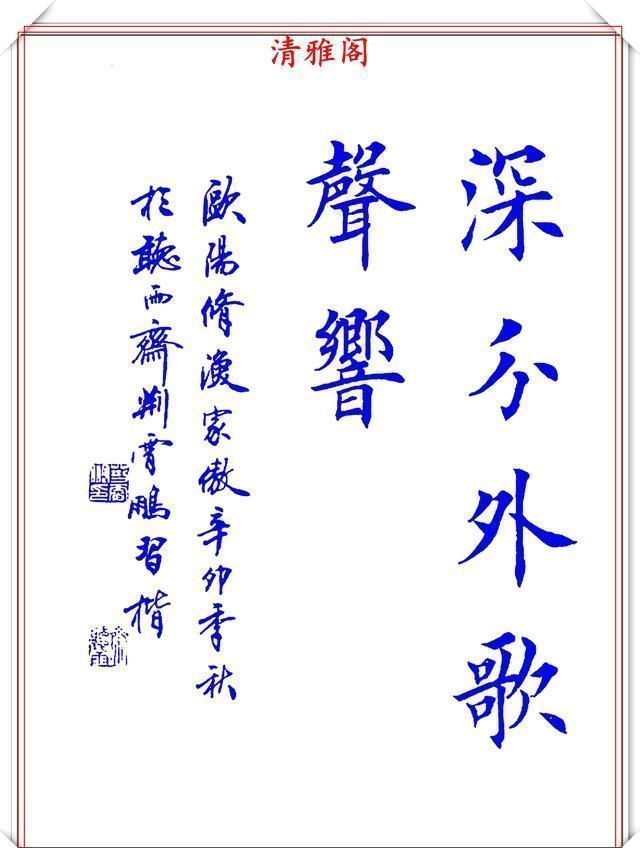 清雅阁
深分外歌
聲響
歐陽脩漁家傲辛卯季秋
於聽雨齋荆霄鵬習楷